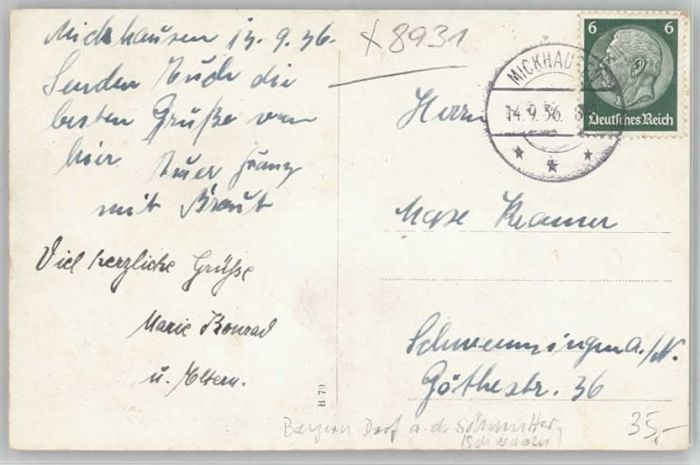 Mickhausen 13.9.36.
Senden Euch die
besten Grüße von
hier Euer Franz
mit Braut
Viel herzliche Grüße
Marie Konrad
u. Eltern.
x8931
MICKHAUSEN
14.9.36.
6 6
Deutsches Reich
Herrn
Max Kramer
Schwenningen a./N.
Göthestr. 36
B 70
Bayern Dorf a.d. Schmutter,
(Schwaben)
35,-